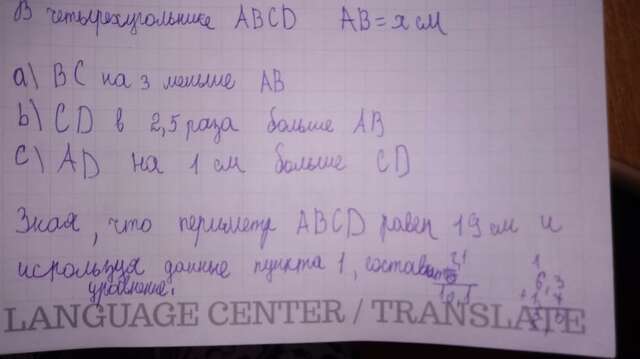 В четырехугольнике ABCD AB = x см
a) BC на 3 меньше AB
b) CD в 2,5 раза больше AB
c) AD на 1 см больше CD
Зная, что периметр ABCD равен 19 см и
используя данные пункта 1, составь
уравнение.
LANGUAGE CENTER / TRANSLATE